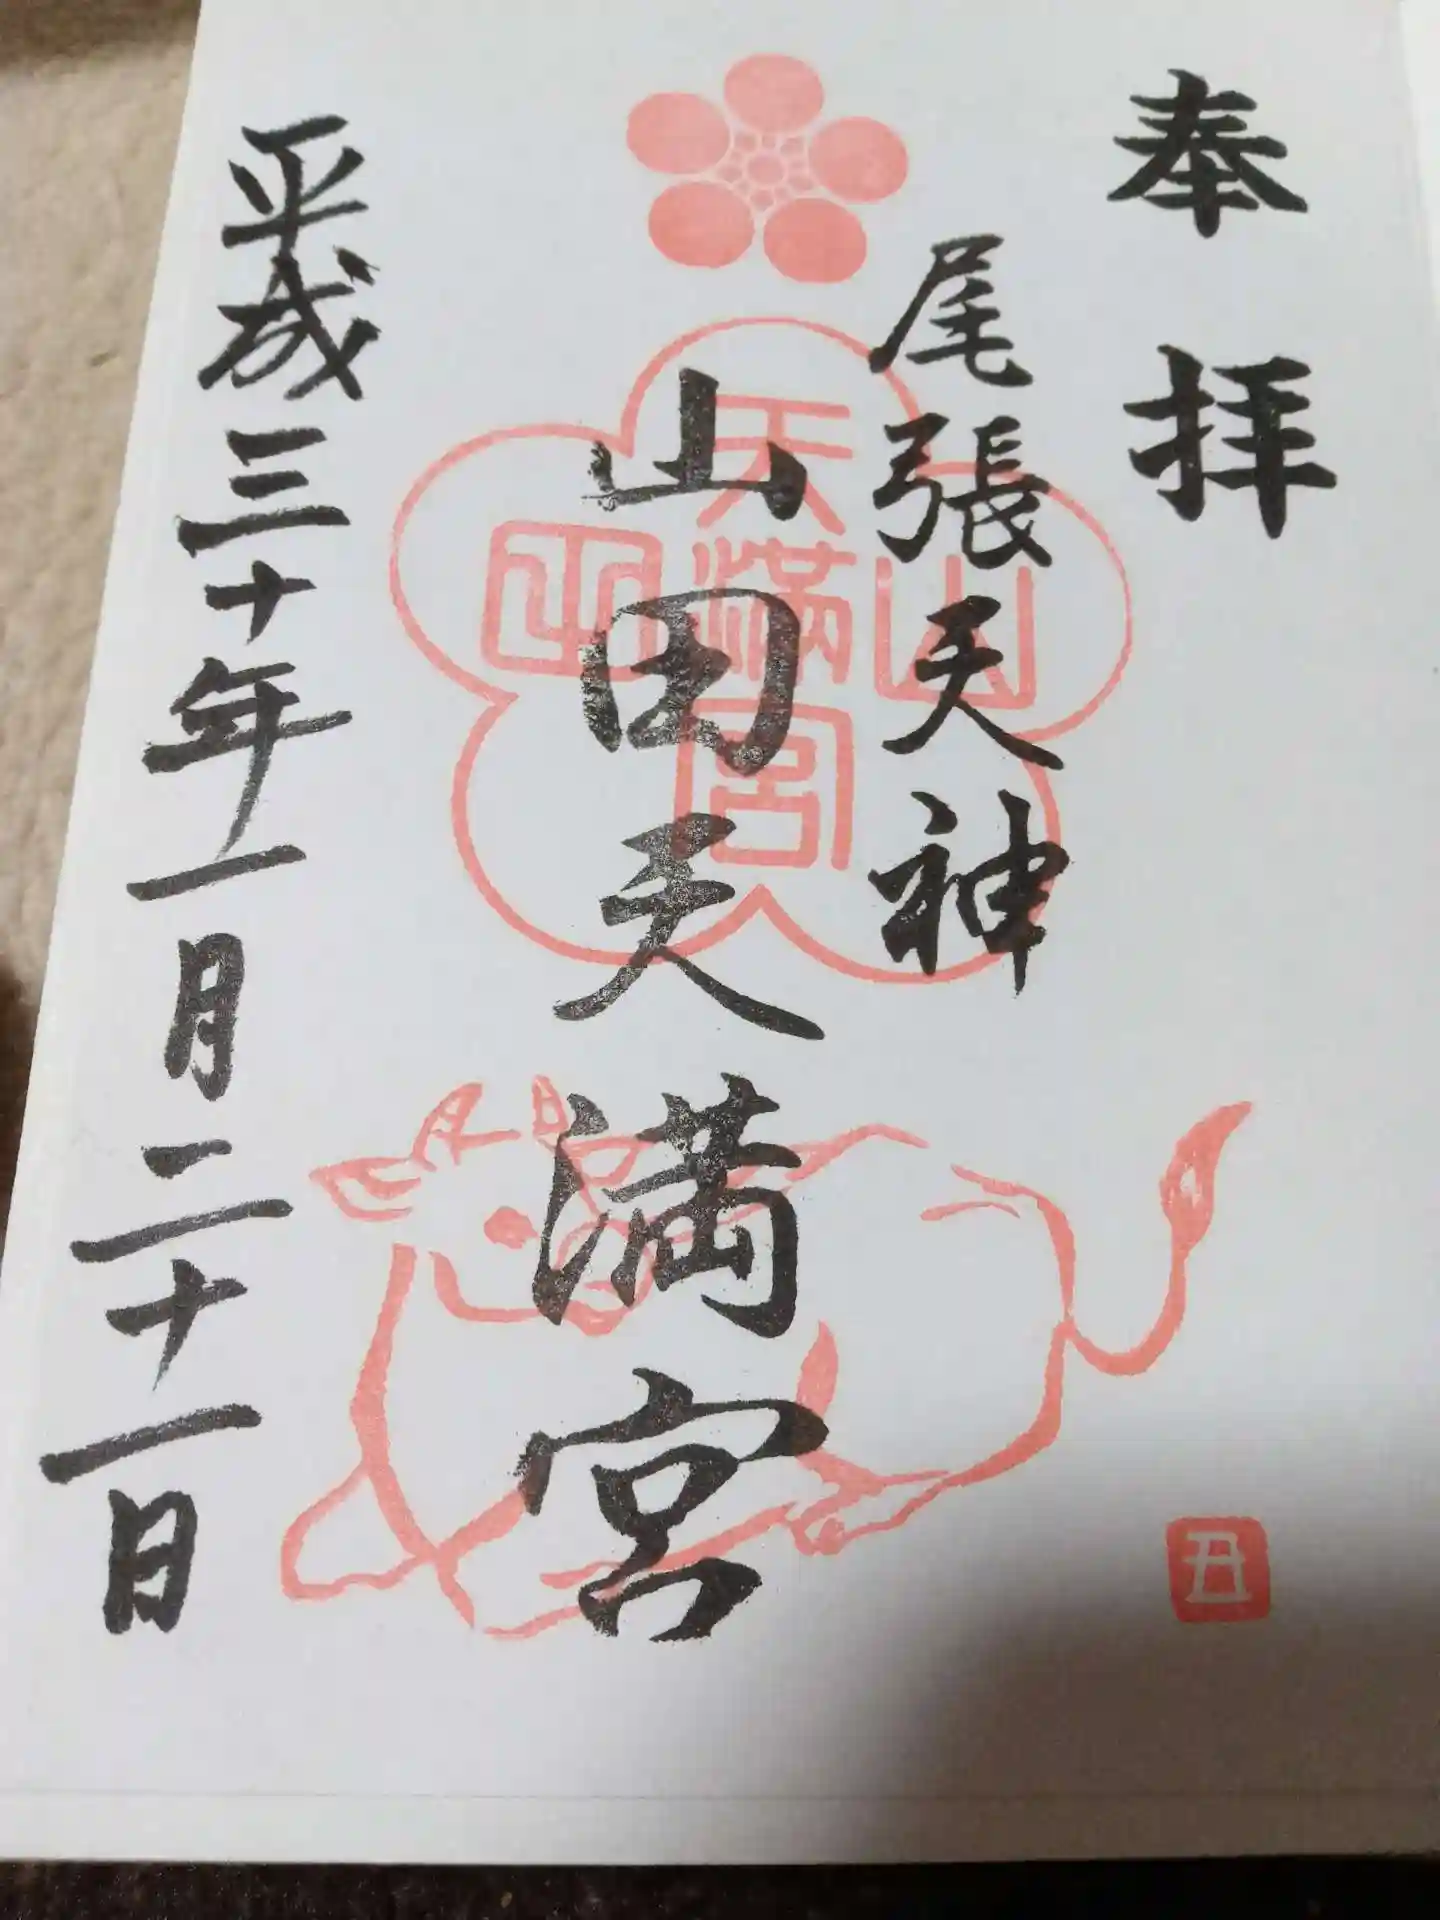 奉拝
尾張天神
山田天満宮
平成三十年一月二十一日
山
天満宮
田
丑